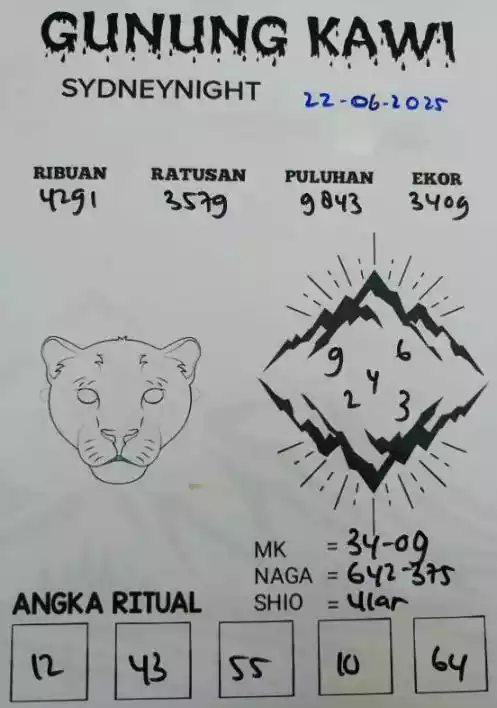 GUNUNG KAWI
SYDNEYNIGHT 22-06-2025
RIBUAN RATUSAN PULUHAN EKOR
4291 3579 9843 3409
9 6
4
2 3
MK = 34-09
NAGA = 642-375
SHIO = Ular
ANGKA RITUAL
12 43 55 10 64